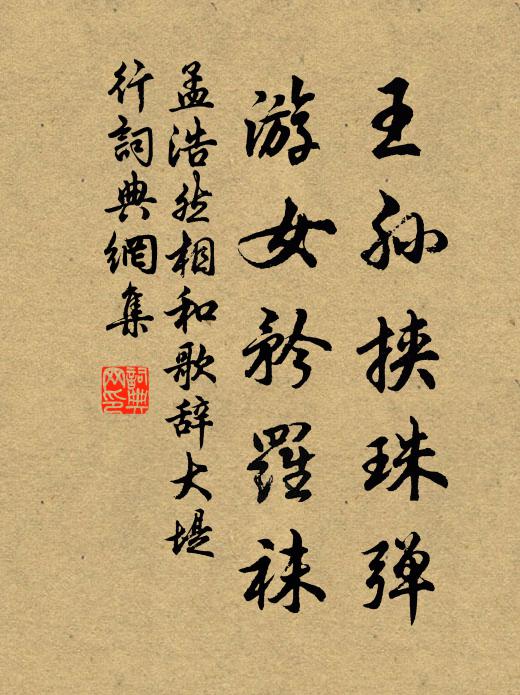 王孙挟珠弹
游女矜羅袜
孟浩然相和歌辞大堤
行詞典網集
詞典网印